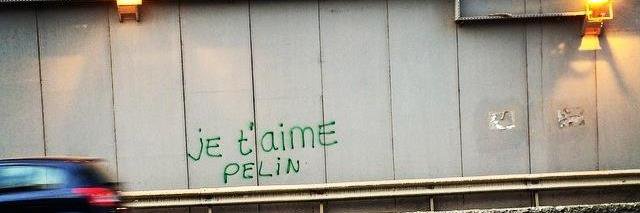 je t'aimE
PELiN